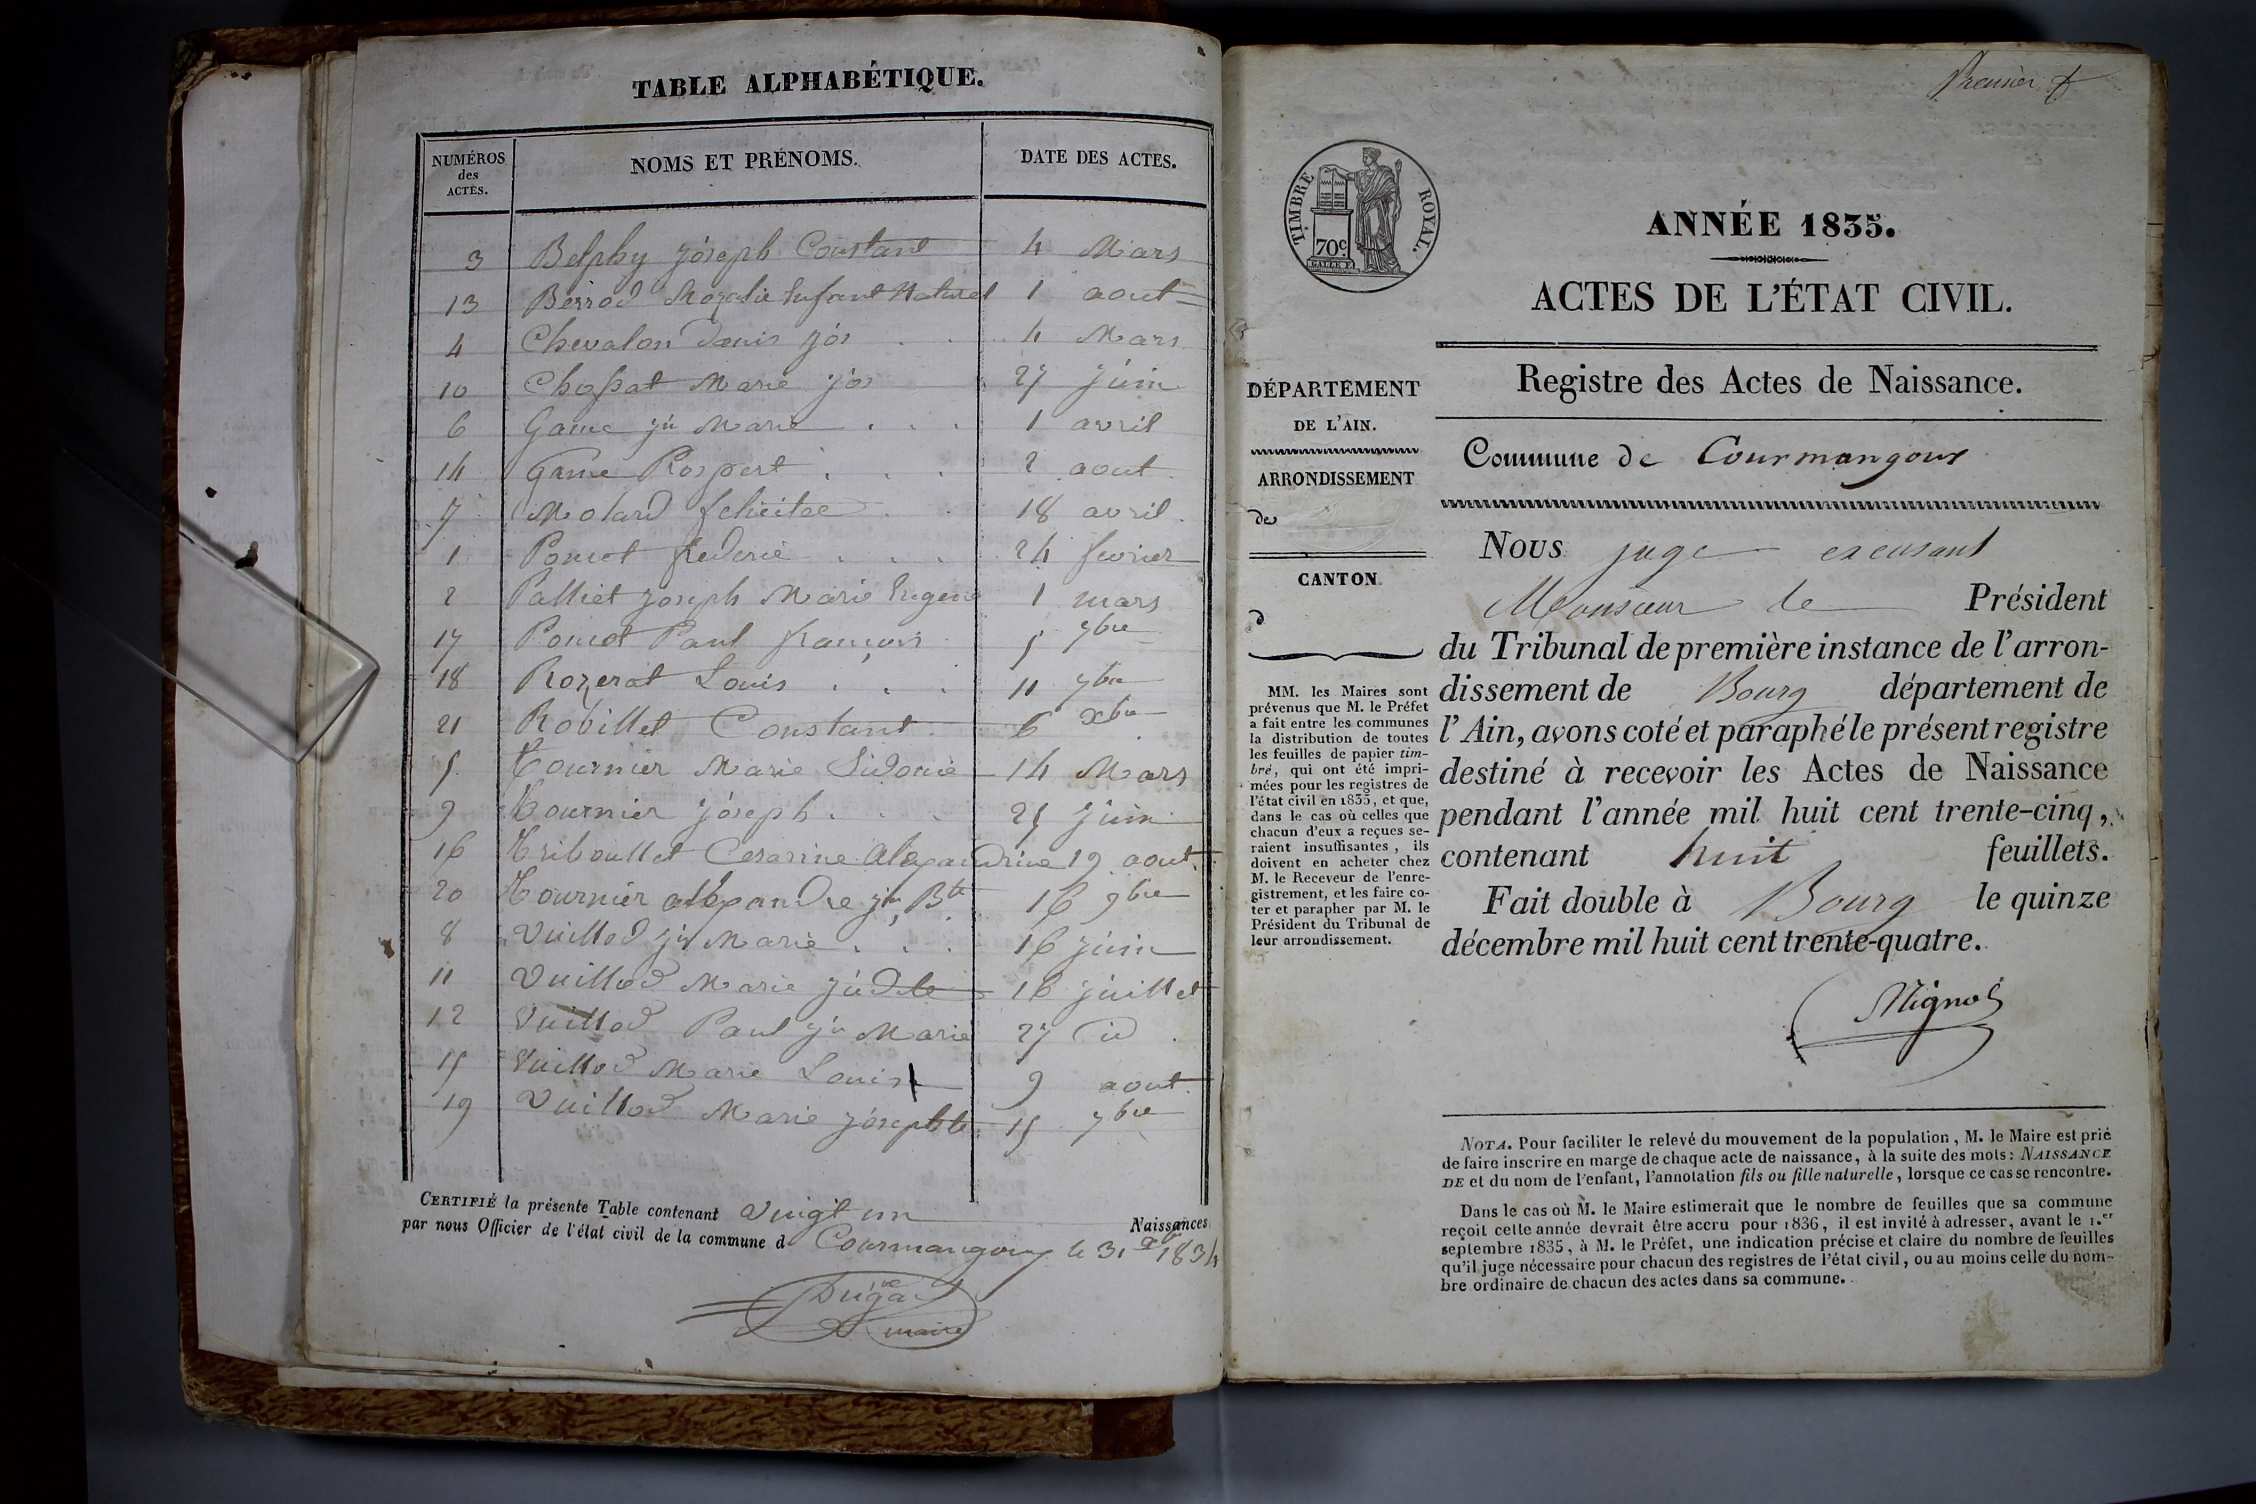 TABLE ALPHABÉTIQUE.
NUMÉROS des ACTES. NOMS ET PRÉNOMS. DATE DES ACTES.
3 Belphy joseph Constant 4 Mars
13 Berrod Rozalie Enfant Naturel 1 aout
4 Chevalon denis jos 4 Mars
10 Chossat Marie jos 27 juin
6 Game jn Marie 1 avril
14 Game Prospert 2 aout
7 Molard felicitee 18 avril
1 Poncet frederic 24 fevrier
2 Palliet joseph Marie Eugene 1 mars
17 Poncet Paul francois 5 7bre
18 Rozerat Louis 11 7bre
21 Robillet Constant 6 xbre
5 Tournier Marie Sidonie 14 Mars
9 Tournier joseph 25 juin
16 Triboullet Cesarine Alexandrine 19 aout
20 Tournier alexandre jn Bte 16 9bre
8 Vuillod jn Marie 16 juin
11 Vuillod Marie judele 16 juillet
12 Vuillod Paul jn Marie 27 id
15 Vuillod Marie Louis 9 aout
19 Vuillod Marie josephte 15 7bre
CERTIFIÉ la présente Table contenant vingt un Naissances
par nous Officier de l'état civil de la commune d Courmangoux le 31 xbre 1834
Dugad
maire
Premier f
TIMBRE ROYAL.
70c.
GALLE F.
ANNÉE 1835.
ACTES DE L'ÉTAT CIVIL.
Registre des Actes de Naissance.
Commune de Courmangoux
DÉPARTEMENT
DE L'AIN.
ARRONDISSEMENT
de
CANTON
d
MM. les Maires sont
prévenus que M. le Préfet
a fait entre les communes
la distribution de toutes
les feuilles de papier tim-
bré, qui ont été impri-
mées pour les registres de
l'état civil en 1835, et que,
dans le cas où celles que
chacun d'eux a reçues se-
raient insuffisantes, ils
doivent en acheter chez
M. le Receveur de l'enre-
gistrement, et les faire co-
ter et parapher par M. le
Président du Tribunal de
leur arrondissement.
NOUS juge excusant
Monsieur le Président
du Tribunal de première instance de l'arron-
dissement de Bourg département de
l'Ain, avons coté et paraphé le présent registre
destiné à recevoir les Actes de Naissance
pendant l'année mil huit cent trente-cinq,
contenant huit feuillets.
Fait double à Bourg le quinze
décembre mil huit cent trente-quatre.
Mignot
NOTA. Pour faciliter le relevé du mouvement de la population, M. le Maire est prié
de faire inscrire en marge de chaque acte de naissance, à la suite des mots: NAISSANCE
DE et du nom de l'enfant, l'annotation fils ou fille naturelle, lorsque ce cas se rencontre.
Dans le cas où M. le Maire estimerait que le nombre de feuilles que sa commune
reçoit cette année devrait être accru pour 1836, il est invité à adresser, avant le 1.er
septembre 1835, à M. le Préfet, une indication précise et claire du nombre de feuilles
qu'il juge nécessaire pour chacun des registres de l'état civil, ou au moins celle du nom-
bre ordinaire de chacun des actes dans sa commune.